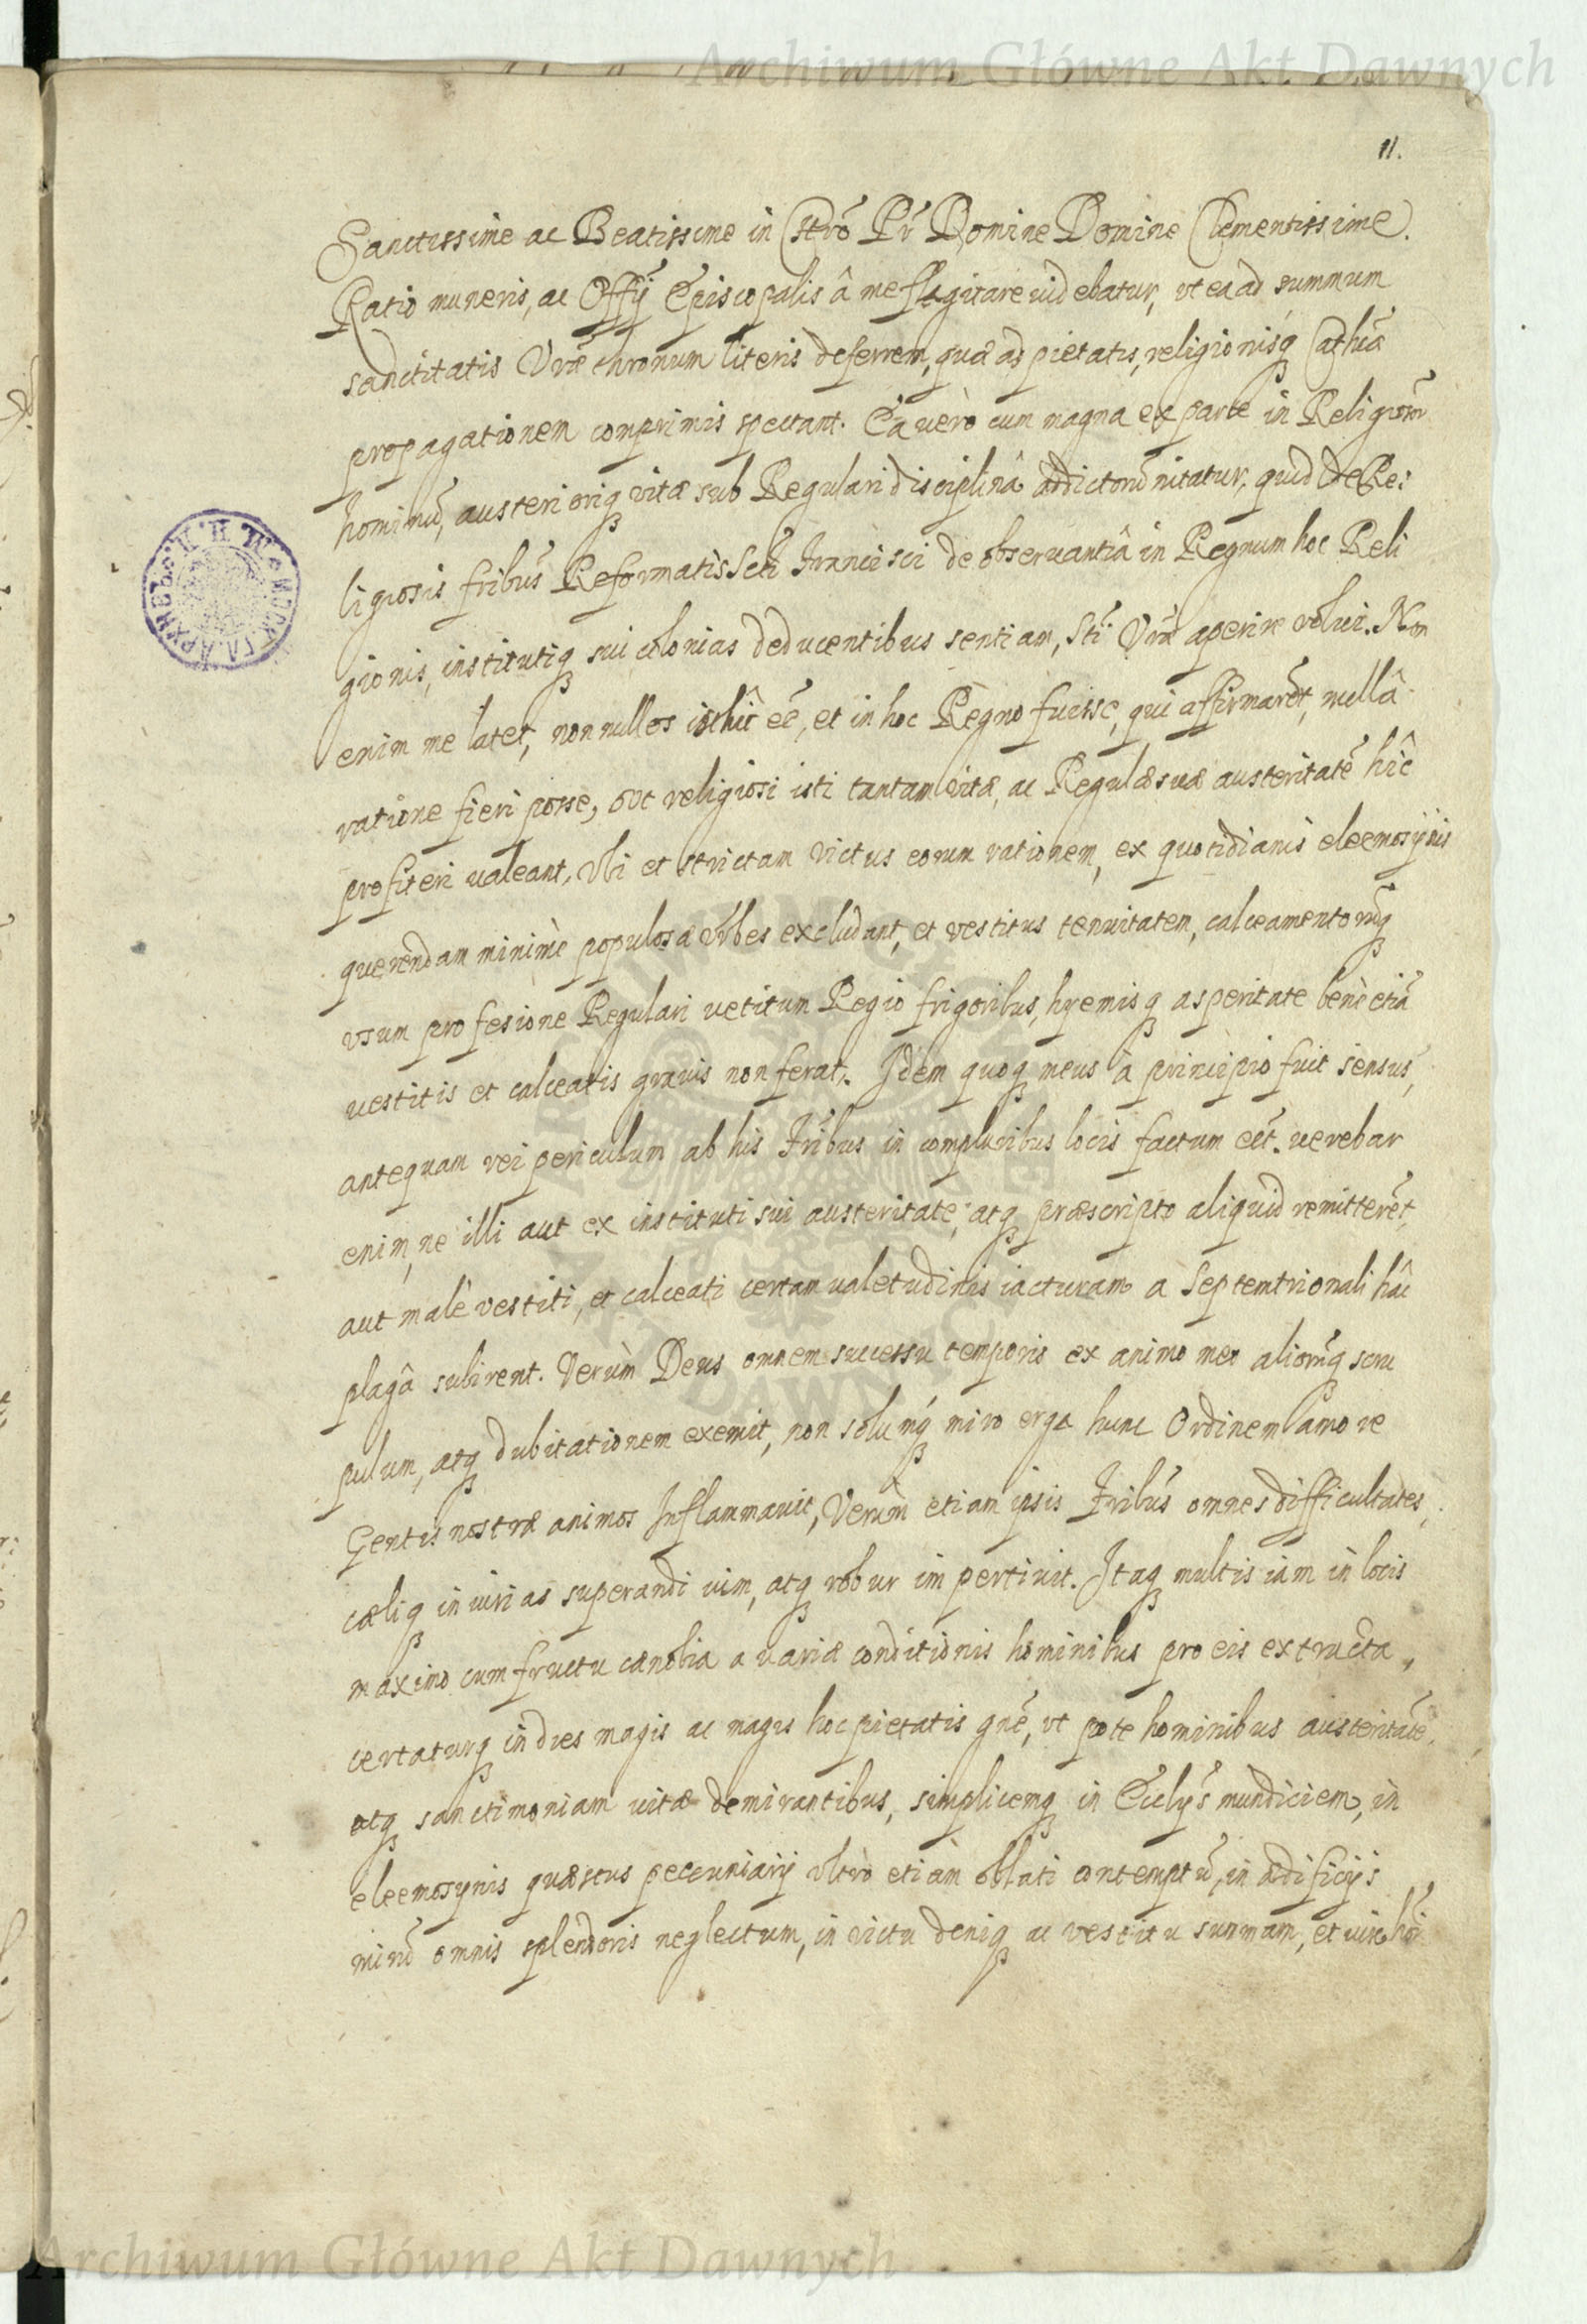 Archiwum Główne Akt Dawnych
11.
Sanctissime ac Beatissime in Chro Pr Domine Domine Clementissime.
Ratio muneris, ac Offij Episcopalis â me flagitare uidebatur, vt ea ad summum
sanctitatis Vræ thronum literis deferrem, quæ ad pietatis, religionisq Cathcæ
propagationem comprimis spectant. Ea uerò cum magna ex parte in Religiosor
hominũ, austeriorisq vitæ sub Regulari disciplinâ addictorũ nitatur, quid de Re:
ligiosis fribus Reformatis Scti Francisci de obseruantiâ in Regnum hoc Reli
gionis, institutiq sui colonias deducentibus sentiam, Sti Vræ aperire volui. Non
enim me latet, nonnullos isthic eẽ, et in hoc Regno fuisse, qui affirmarẽt, nullâ
ratione fieri posse, vt religiosi isti tantam vitæ, ac Regulæ suæ austeritatẽ hîc
profiteri ualeant, Vbi et strictam victus eorum rationem, ex quotidianis eleemosynis
querendam minimè populosæ Vrbes excludant, et vestitus tenuitatem, calceamentorũq
vsum profesione Regulari uetitum Regio frigoribus, hyemisq asperitate benè etiã
uestitis et calceatis grauis non ferat. Idem quoq meus à principio fuit sensus,
antequam rei periculum ab his Fribus in compluribus locis factum eẽt. uerebar
enim, ne illi aut ex instituti sui austeritate, atq præscripto aliquid remitterẽt,
aut malè vestiti, et calceati certam ualetudinis iacturam a Septemtrionali hâc
plagâ subirent. Verùm Deus omnem successu temporis ex animo meo aliorũq scru
pulum, atq dubitationem exemit, non solumq miro erga hunc Ordinem amore
Gentis nostræ animos Inflammauit, Verùm etiam ipsis Fribus omnes difficultates,
cæliq iniurias superandi uim, atq robur impertiuit. Itaq multis iam in locis
maximo cum fructu cænobia a uariæ conditionis hominibus pro eis extructa,
certaturq in dies magis ac magis hoc pietatis gnẽ, vt pote hominibus austeritatẽ,
atq sanctimoniam uitæ demirantibus, simplicemq in Ecclijs mundiciem, in
eleemosynis quæstus peccuniarij vltrò etiàm oblati contemptũ, in ædificijs
nimũ omnis splendoris neglectum, in victu deniq ac vestitu summam, et uix
Archiwum Główne Akt Dawnych